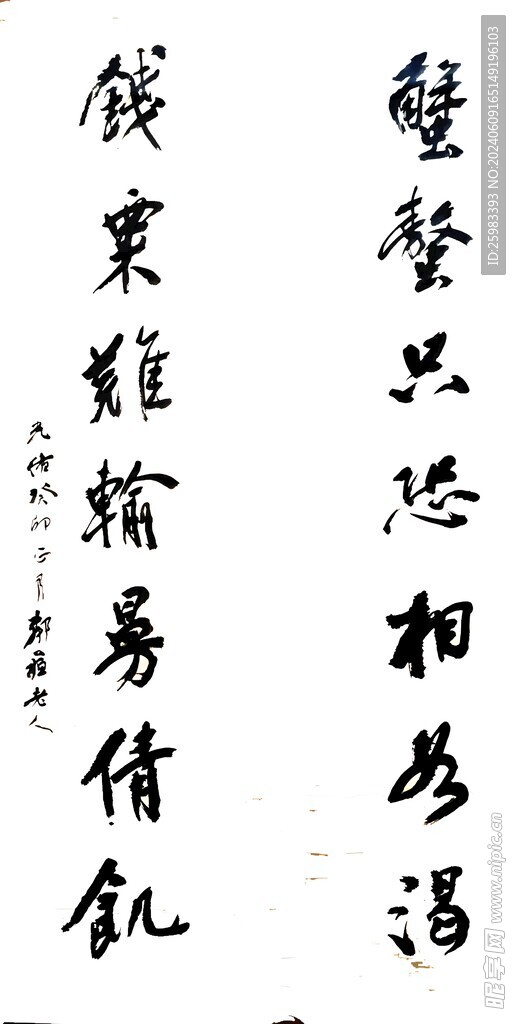 蟹螯只恐相如渴
錢粟難輸曼倩飢
光緒癸卯正月鄰蘇老人
ID:25983393 NO:20240609165149196103
昵享网 www.nipic.cn